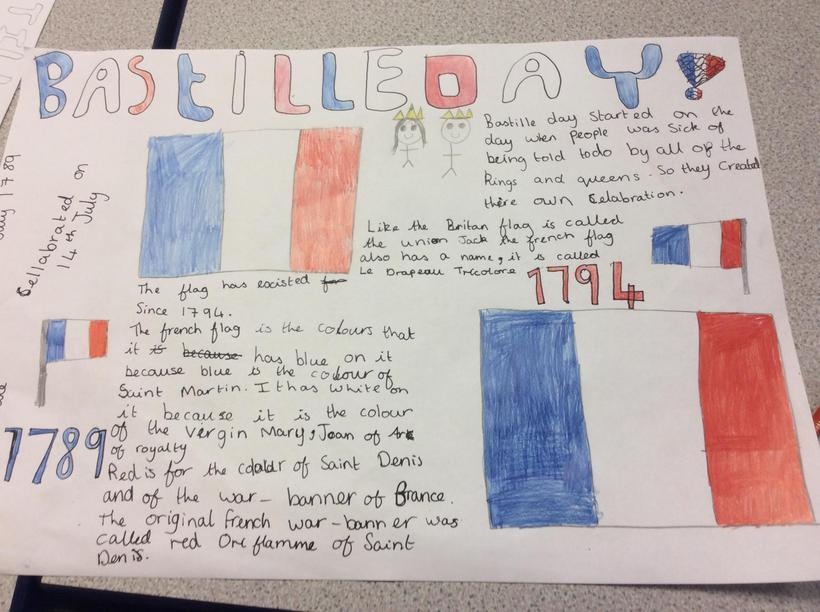 BASTILLE DAY!
Bastille day started on the
day when people was sick of
being told todo by all of the
kings and queens. So they created
there own celabration.
Cellabrated on
14th July
Like the Britan flag is called
the union Jack the french flag
also has a name, it is called
Le Drapeau Tricolore
1794
The flag has excisted for
Since 1794.
The french flag is the colours that
it is because has blue on it
because blue is the colour of
Saint Martin. It has white on
it because it is the colour
of the vergin Mary, Joan of Ark
of royalty
Red is for the colour of Saint Denis
and of the war-banner of France.
the original french war-banner was
called red Oreflamme of Saint
Denis.
1789
1789